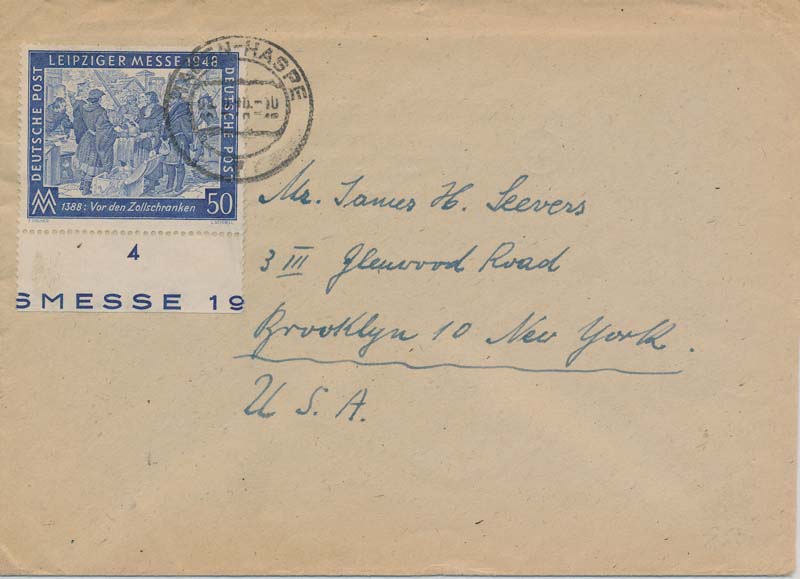 LEIPZIGER MESSE 1948
DEUTSCHE POST
DEUTSCHE POST
1388: Vor den Zollschranken 50
4
SMESSE 19
HAGEN-HASPE
Mr. James H. Seevers
3 III Glenwood Road
Brooklyn 10 New York.
U. S. A.